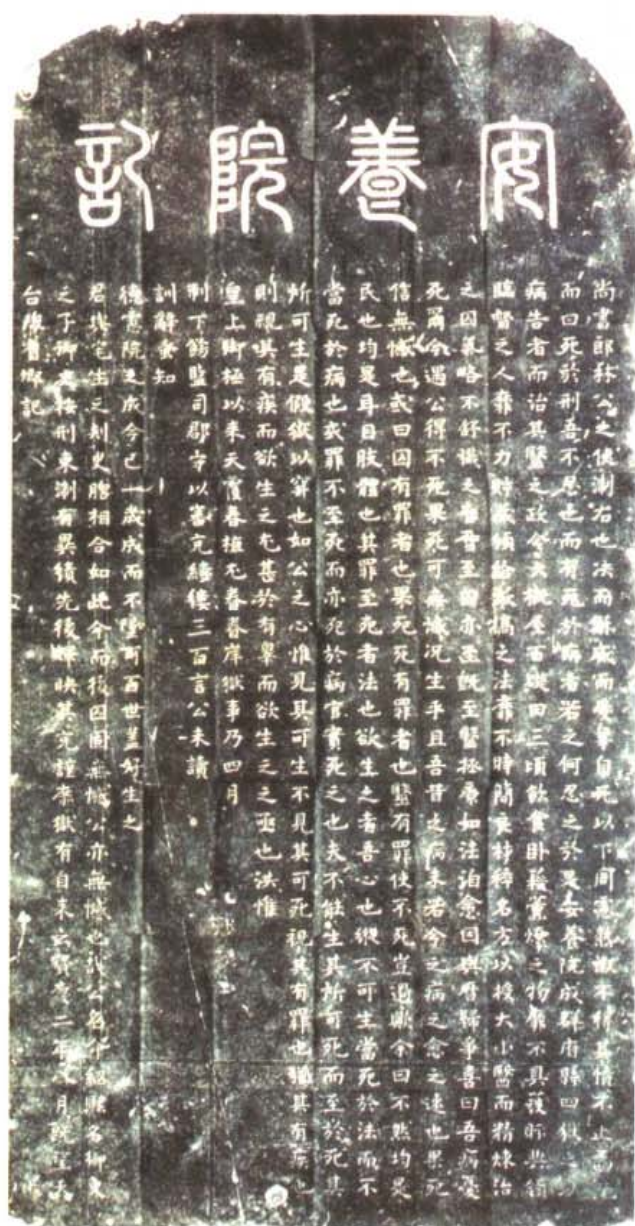 安養院記
尚書郎林公之使淛右也決而
而曰死於刑吾不忍也而有死於病者若之何忍之於是安養院成群有縣四獄之以
病告者而治其醫之政令夫橡屋百
田三頃飲食臥藉薰燎之物靡不具護昕與
臨督之人靡不力時
之法靡不時簡良材粹名方以授大小醫而精煉治
之因義略不舒
至旦亦至既至醫拯療如法洎愈因與胥歸爭喜曰吾病憂
死爾今遇公得不死果死可無憾況生乎且吾昔之病未若今之病之念之速也果死
信無憾也或曰囚有罪者也果死死有罪者也醫有罪使不死豈過歟余曰不然均是
民也均是耳目肢體也其罪至死者法也欲生之者吾心也縱不可生當死於法而不
當死於病也或罪不至死而亦死於病官實死之也夫不能生其所可死而至於死其
所可生是假獄以穽也如公之心惟見其可生不見其可死視其有罪也猶其有疾也
則視其有疾而欲生之尤甚於有辠而欲生之之亟也洪惟
皇上御極以來天覆春植尤眷眷庠獄事乃四月
制下飭監司郡守以審克縷縷三百言公未讀
訓辭耒知
德意院之成今已一歲成而不墜可百世蓋好生之
君與宅生之刺史脗相合如此今而後囚固無憾公亦無憾也
公名介紹熙名卿
之子卿
按刑東淛有異績先後輝映其究謹庠獄有自來云寶
二年
月既望天
台陳耆卿記